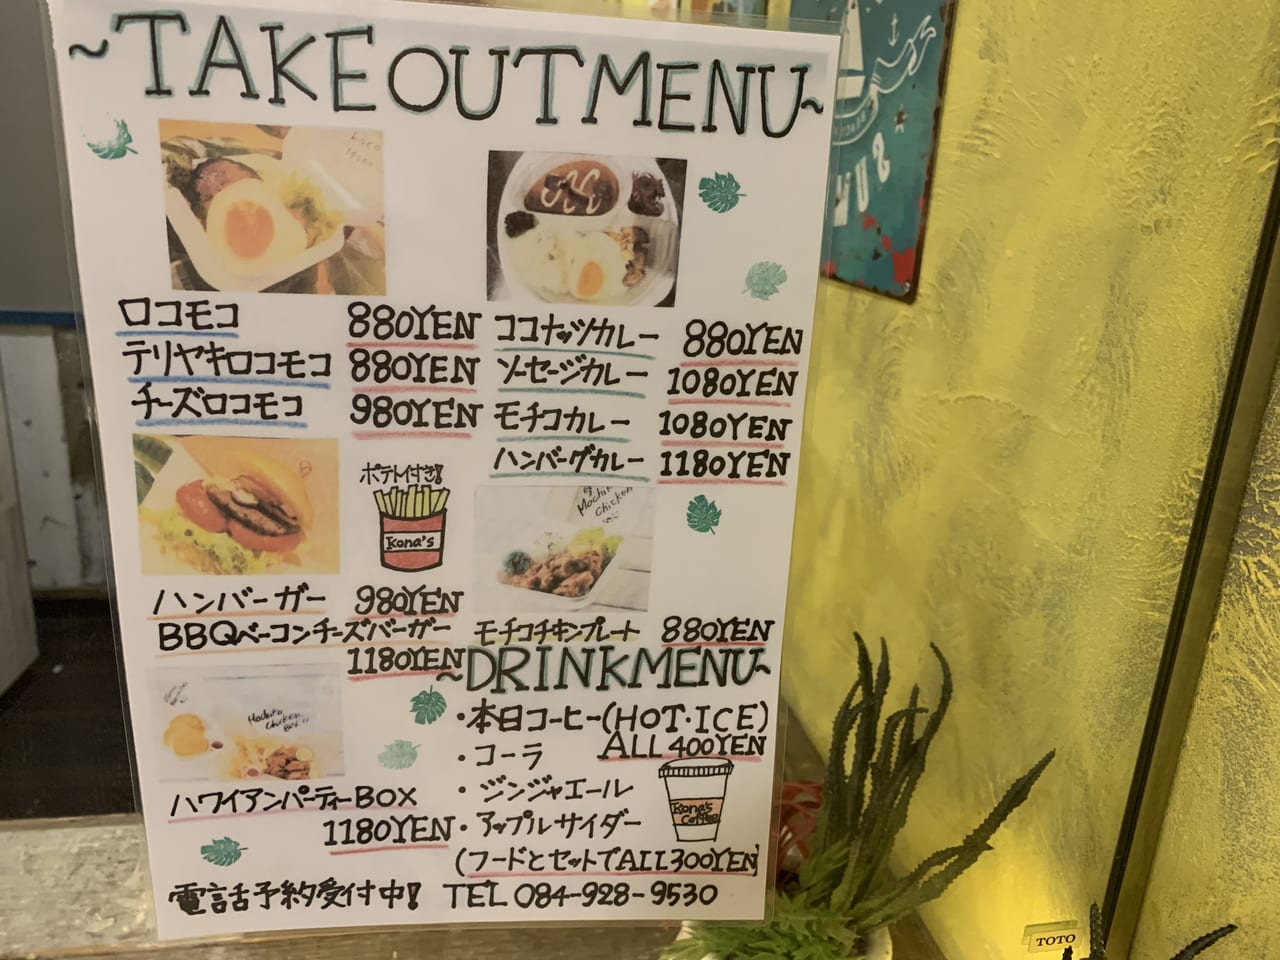 ~TAKEOUTMENU~
ロコモコ 880YEN
テリヤキロコモコ 880YEN
チーズロコモコ 980YEN
ココナッツカレー 880YEN
ソーセージカレー 1080YEN
モチコカレー 1080YEN
ハンバーグカレー 1180YEN
ポテト付き!
Kona's
Mochiko
Chicken
ハンバーガー 980YEN
BBQベーコンチーズバーガー
1180YEN
モチコチキンプレート 880YEN
Mochiko
Chicken
ハワイアンパーティーBOX
1180YEN
~DRINKMENU~
・本日コーヒー(HOT・ICE)
ALL 400YEN
・コーラ
・ジンジャエール
・アップルサイダー
Kona's
Coffee
(フードとセットでALL300YEN)
電話予約受付中! TEL 084-928-9530
TOTO